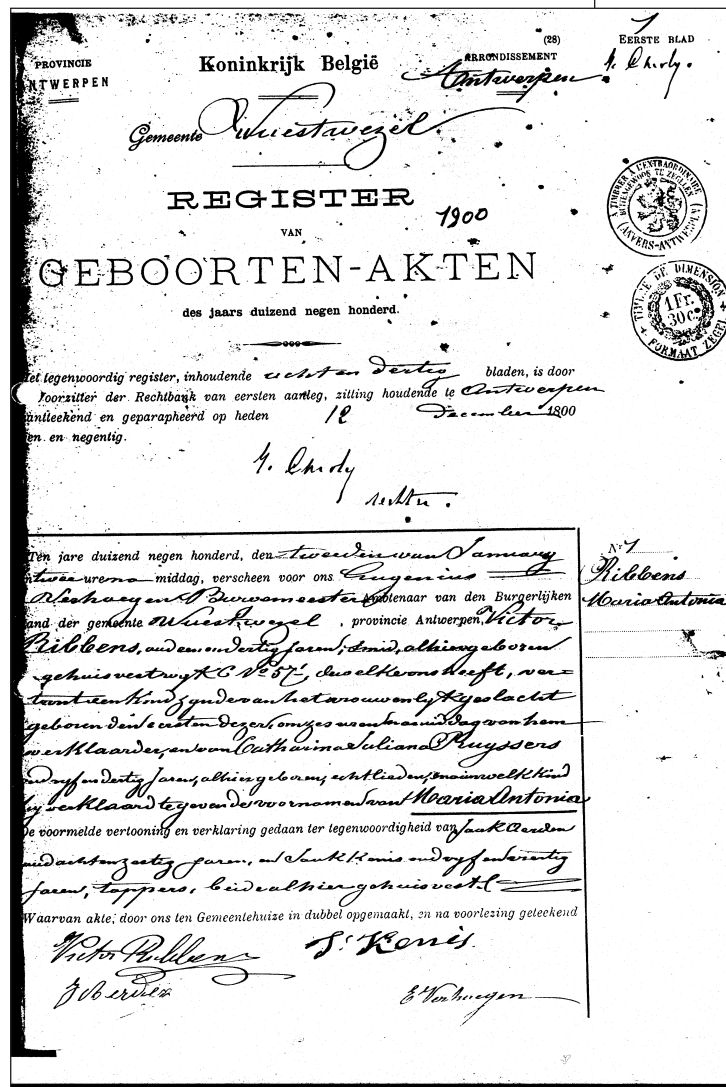 1
(28)
EERSTE BLAD
PROVINCIE
Koninkrijk België
ARRONDISSEMENT
NTWERPEN
Antwerpen
Gemeente Wuestwezel
A TIMBRER À L'EXTRAORDINAIRE
BUITENGEWOON TE ZEGELEN
(ANVERS-ANTWERPEN)
REGISTER
1900
VAN
GEBOORTEN-AKTEN
TIMBRE DE DIMENSION
1 Fr.
30 c.
FORMAAT ZEGEL
des jaars duizend negen honderd.
et tegenwoordig register, inhoudende acht en dertig bladen, is door
Voorzitter der Rechtbank van eersten aanleg, zitting houdende te Antwerpen
antteekend en geparapheerd op heden 12 December 1800
en en negentig.
rechter.
Ten jare duizend negen honderd, den tweeden van January
twee uren na middag, verscheen voor ons Eugenius
Verhaegen Burgemeester Ambtenaar van den Burgerlijken
and der gemeente Wuestwezel, provincie Antwerpen, Victor
Ribbens, oud een en dertig jaren, smid, alhier geboren
gehuisvest wyk C No 57, dewelke ons heeft, ver-
toont een kind zynde van het vrouwenlyk geslacht
geboren den eersten dezer, om zes uren namiddag van hem
verklaarder, en van Catharina Juliana Kuyssers
oud vyf en dertig Jaren, alhier geboren, echtlieden, en aan welk kind
hy verklaard te geven de voornamen van Maria Antonia
De voormelde vertooning en verklaring gedaan ter tegenwoordigheid van Jaak Aerden
oud acht en zestig jaren, en Jaak Kenis oud vyf en veertig
jaren, tappers, beide alhier gehuisvest
Waarvan akte, door ons ten Gemeentehuize in dubbel opgemaakt, en na voorlezing geteekend
Victor Ribbens
J. Kenis
J Aerden
E Verhaegen
Nr 1
Ribbens
Maria Antonia